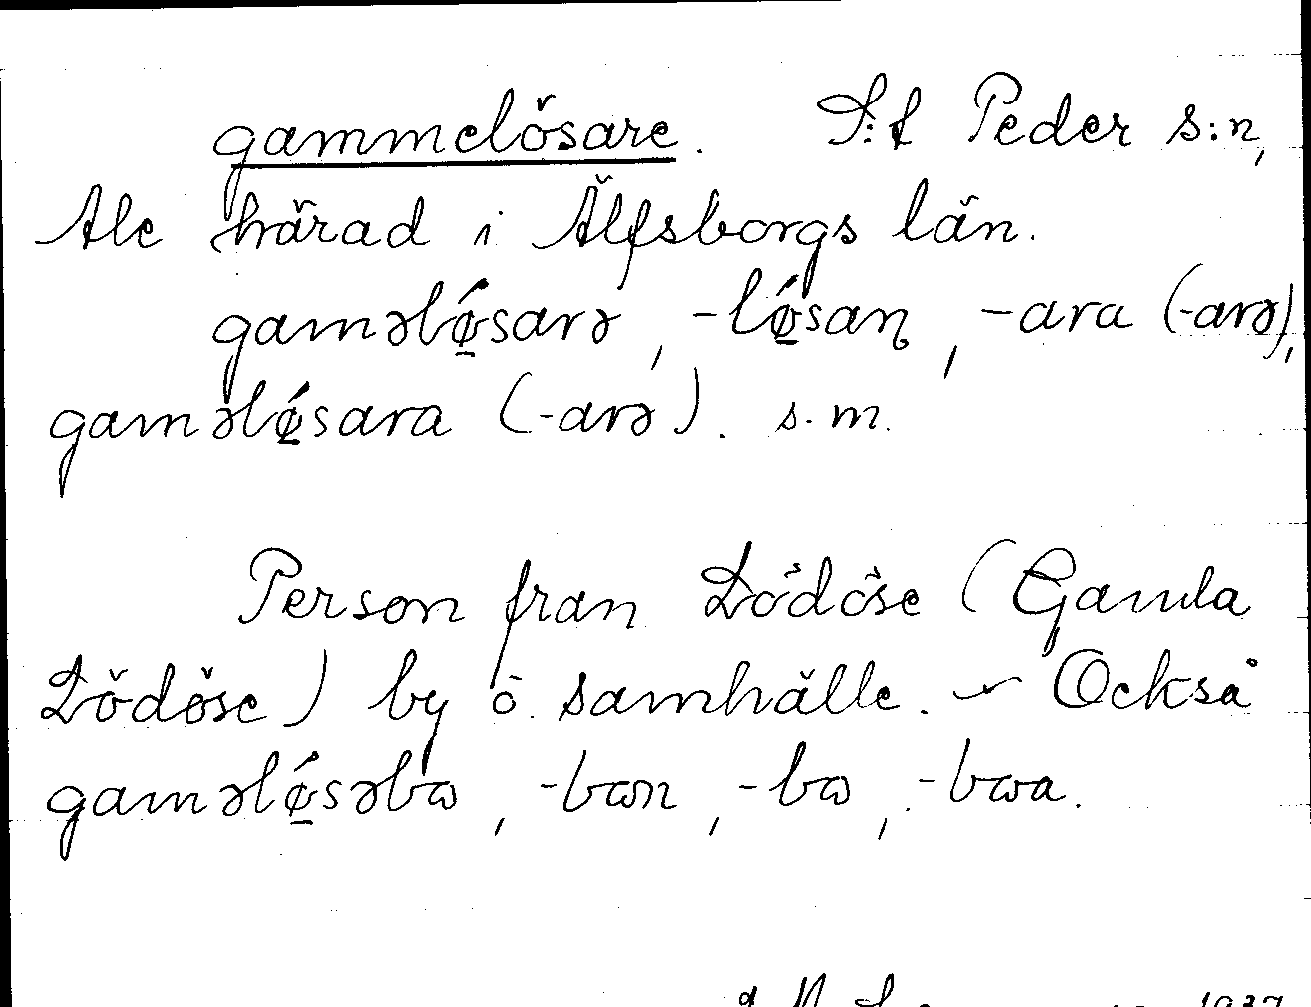 gammelösare. S:t Peder s:n,
Ale härad i Älfsborgs län.
gaməlǿ̱sarə, -lǿ̱saɳ, -ara (-arə),
gaməlǿ̱sara (-arə). s. m.
Person från Lödöse (Gamla
Lödöse) by o. samhälle. – Också
gaməlǿ̱səbɷ, -bɷn, -bɷ, -bɷa.
1937